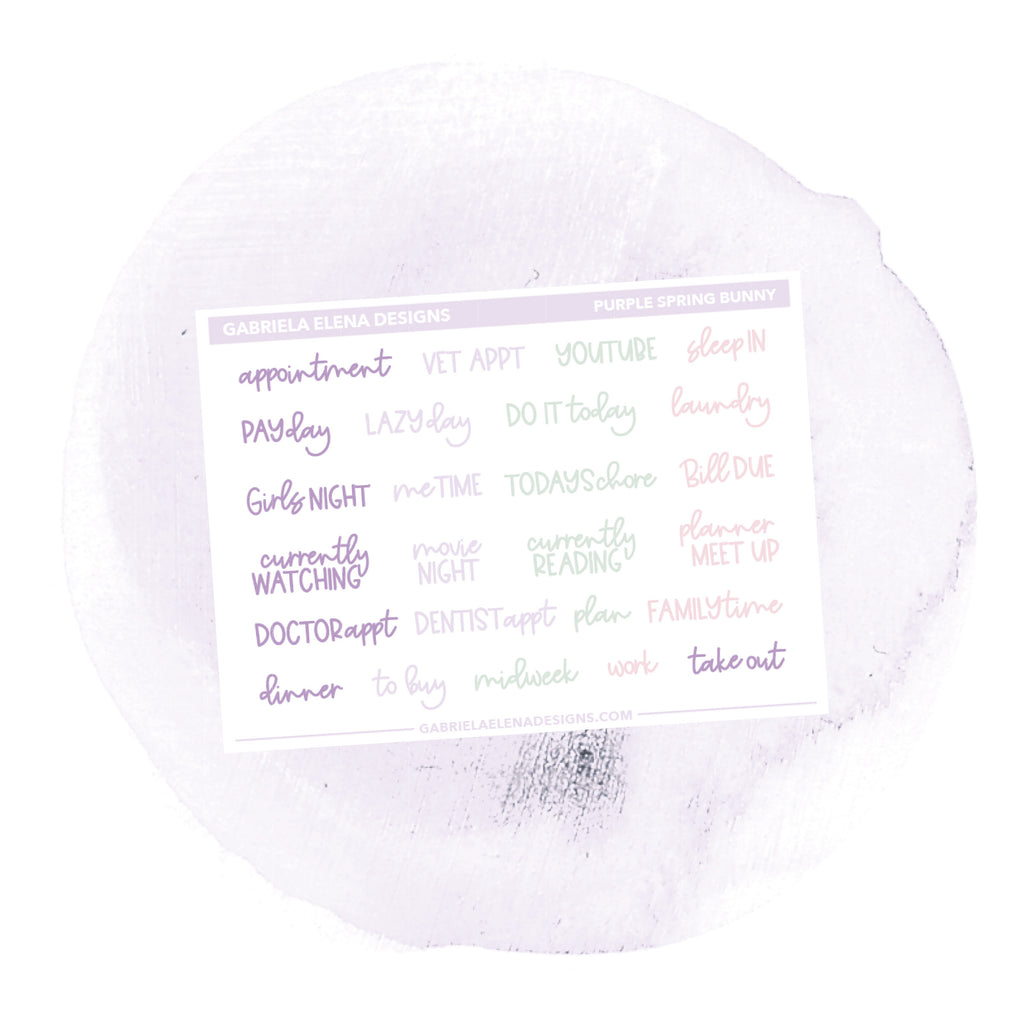 GABRIELA ELENA DESIGNS PURPLE SPRING BUNNY
appointment VET APPT YOUTUBE sleep IN
PAYday LAZY day DO IT today laundry
Girls NIGHT me TIME TODAYS chore Bill DUE
currently movie currently planner
WATCHING NIGHT READING MEET UP
DOCTOR appt DENTIST appt plan FAMILY time
dinner to buy midweek work take out
GABRIELAELENADESIGNS.COM